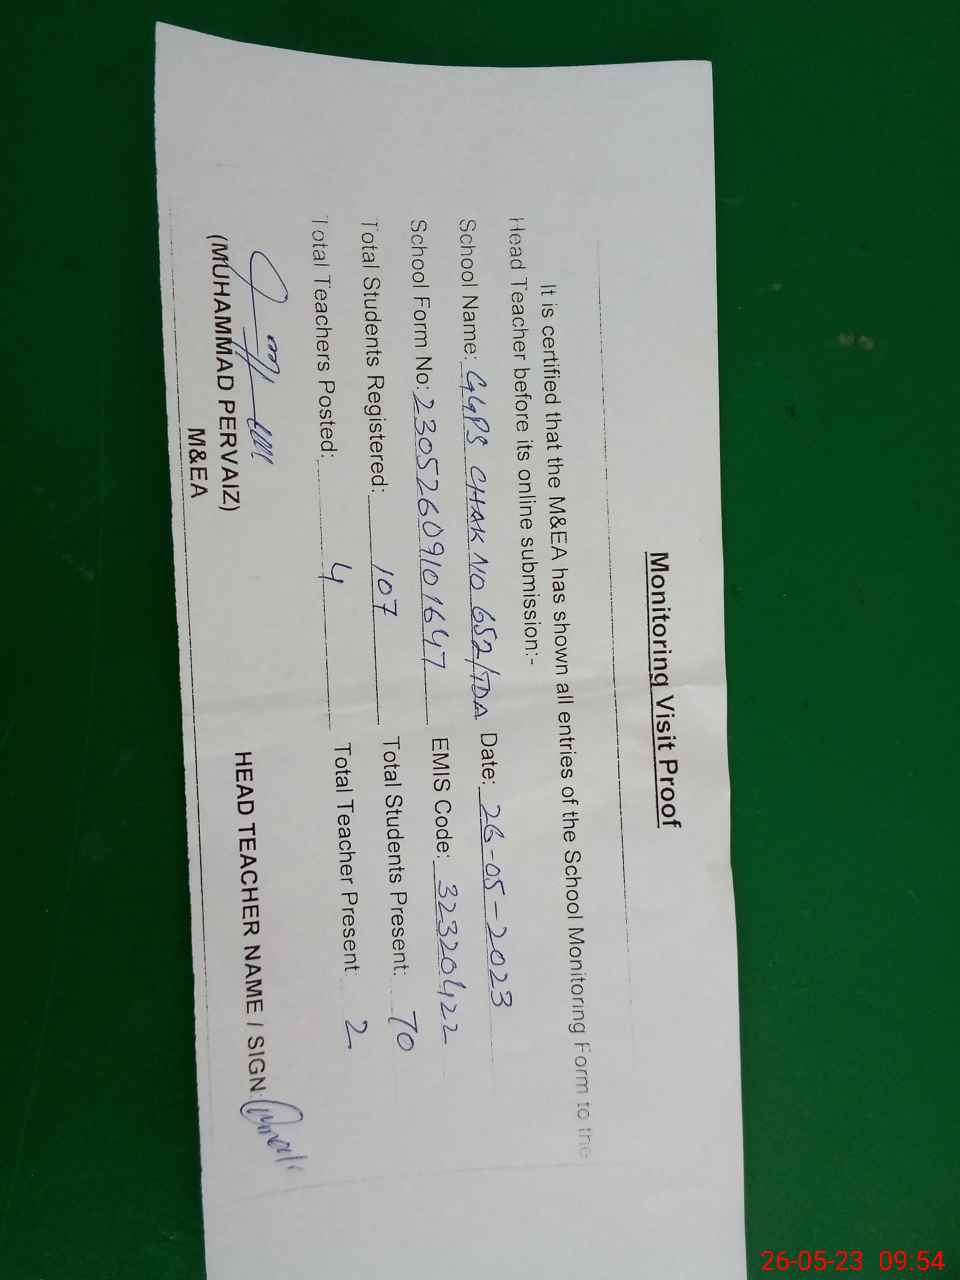 Monitoring Visit Proof
It is certified that the M&EA has shown all entries of the School Monitoring Form to the
Head Teacher before its online submission:-
School Name: GGPS CHAK NO 652/TDA Date: 26-05-2023
School Form No: 23052609101647 EMIS Code: 32320422
Total Students Registered: 107 Total Students Present: 70
Total Teachers Posted: 4 Total Teacher Present: 2
(MUHAMMAD PERVAIZ) HEAD TEACHER NAME / SIGN:
M&EA
26-05-23 09:54